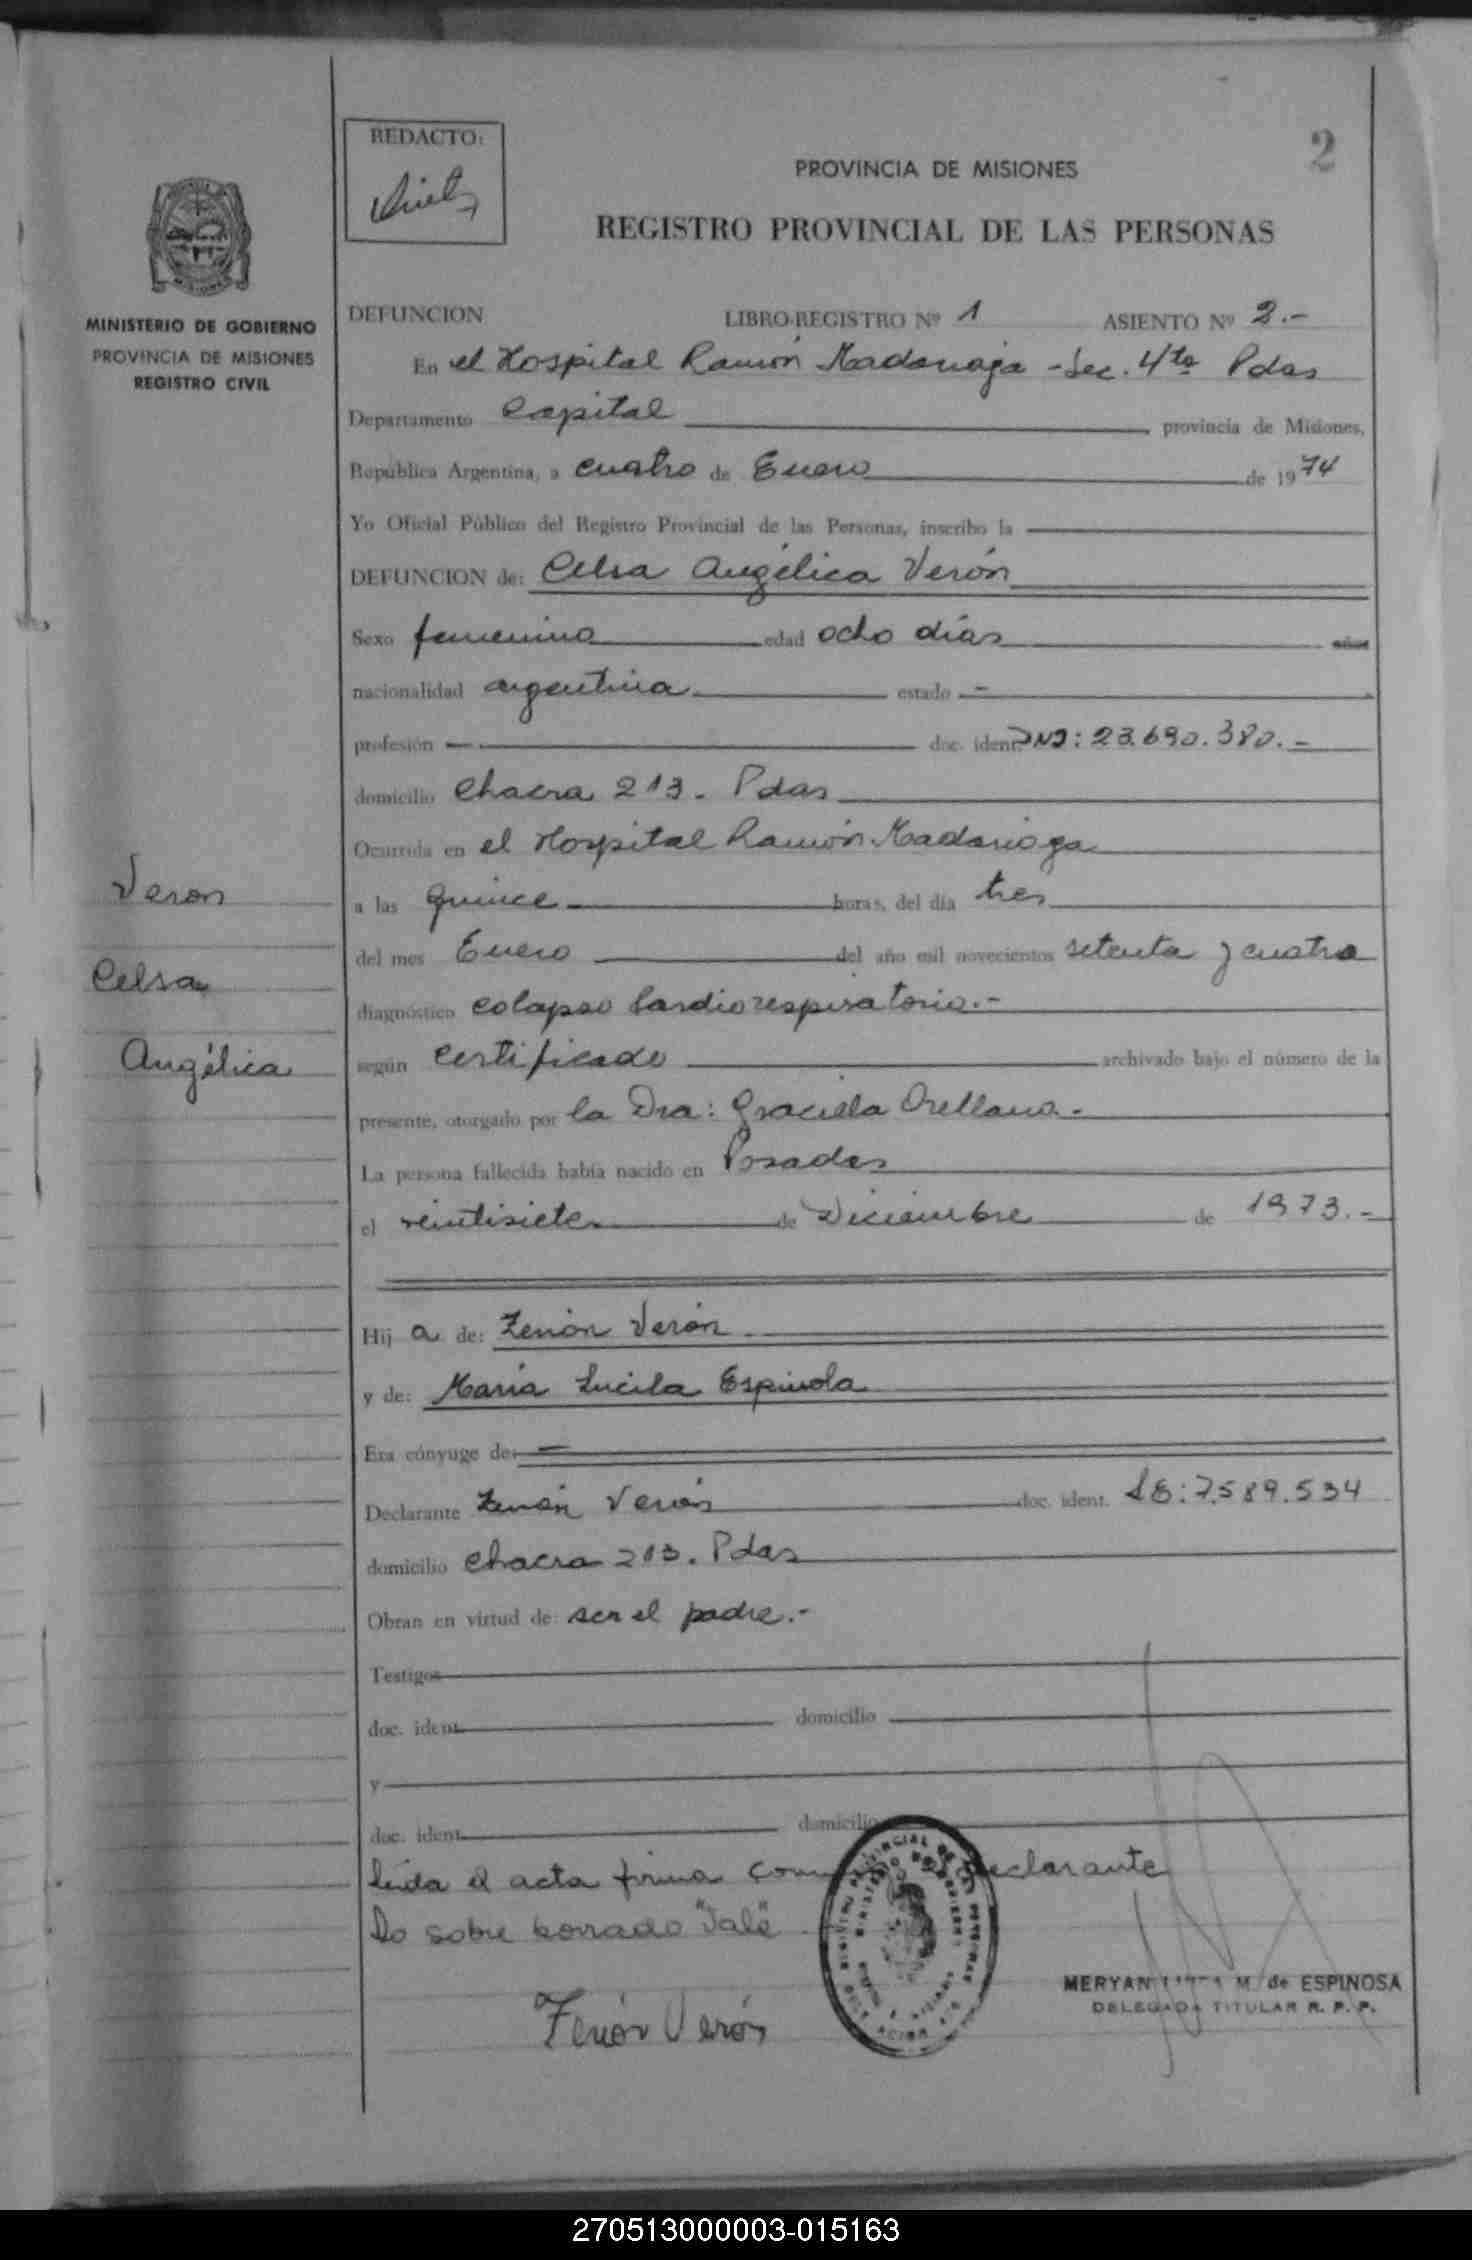 REDACTO:
2
PROVINCIA DE MISIONES
REGISTRO PROVINCIAL DE LAS PERSONAS
MINISTERIO DE GOBIERNO
PROVINCIA DE MISIONES
REGISTRO CIVIL
DEFUNCION LIBRO-REGISTRO Nº 1 ASIENTO Nº 2.-
En el Hospital Ramón Madariaga - Sec. 4ta Pdas
Departamento Capital provincia de Misiones,
República Argentina, a cuatro de Enero de 1974
Yo Oficial Público del Registro Provincial de las Personas, inscribo la
DEFUNCION de: Celsa Angélica Verón
Sexo femenino edad ocho días años
nacionalidad argentina estado -
profesión - doc. ident. DNI: 23.690.380.-
domicilio Chacra 213. Pdas
Ocurrida en el Hospital Ramón Madariaga
a las quince horas, del día tres
del mes Enero del año mil novecientos setenta y cuatro
diagnóstico colapso Cardiorespiratorio.-
según Certificado archivado bajo el número de la
presente, otorgado por la Dra: Graciela Orellana.-
La persona fallecida había nacido en Posadas
el veintisiete de Diciembre de 1973.-
Veron
Celsa
Angélica
Hij a de: Zenón Verón
y de: María Lucila Espinola
Era cónyuge de: -
Declarante Zenón Verón doc. ident. LE: 7.589.534
domicilio Chacra 213. Pdas
Obran en virtud de: ser el padre.-
Testigos
doc. ident. domicilio
y
doc. ident. domicilio
Leída el acta firma declarante
Do sobre borrado "Vale"
Zenón Verón
MERYAN M. de ESPINOSA
DELEGADA TITULAR R. P. P.
270513000003-015163